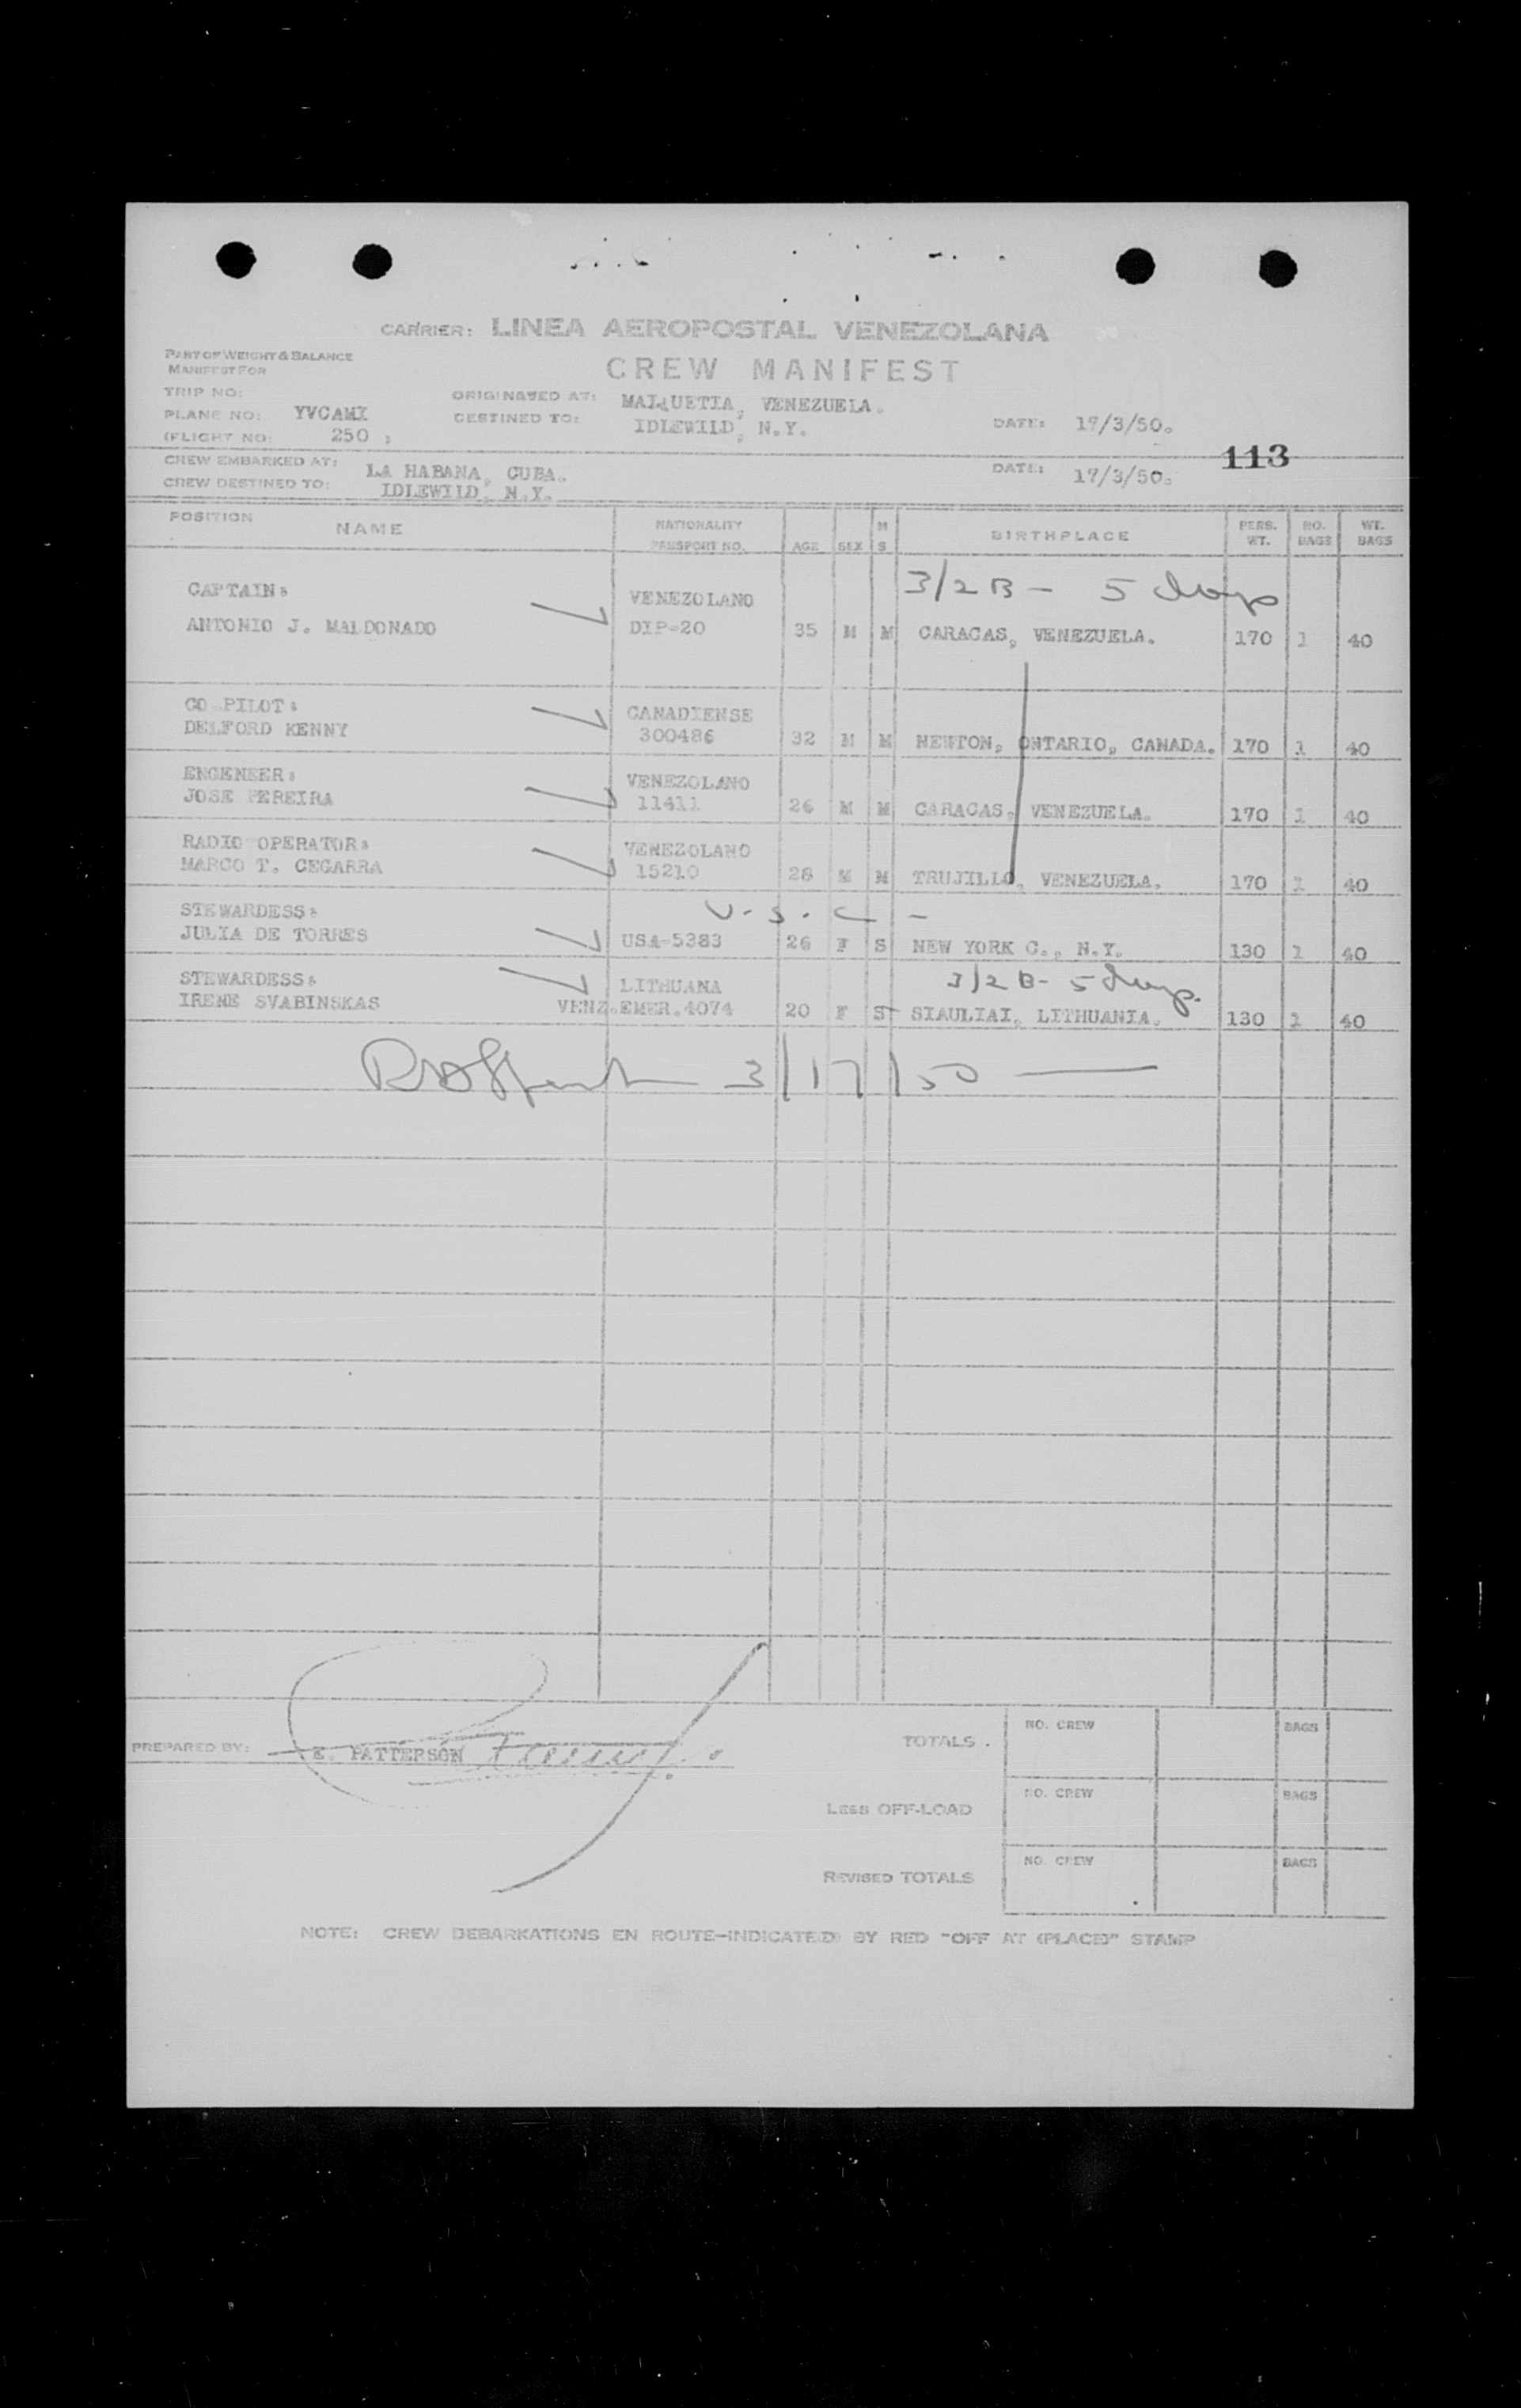 CARRIER: LINEA AEROPOSTAL VENEZOLANA
PART OF WEIGHT & BALANCE
MANIFEST FOR
CREW MANIFEST
TRIP NO:
ORIGINATED AT: MAIQUETIA, VENEZUELA.
PLANE NO: YVCAMX
DESTINED TO: IDLEWILD, N.Y. DATE: 17/3/50.
(FLIGHT NO: 250 ;
113
CREW EMBARKED AT: LA HABANA, CUBA. DATE: 17/3/50.
CREW DESTINED TO: IDLEWILD, N.Y.
POSITION NAME NATIONALITY PASSPORT NO. AGE SEX M S BIRTHPLACE PERS. WT. NO. BAGS WT. BAGS
3/2 B - 5 days
CAPTAIN: VENEZOLANO
ANTONIO J. MALDONADO DIP-20 35 M M CARACAS, VENEZUELA. 170 1 40
CO-PILOT: CANADIENSE
DELFORD KENNY 300486 32 M M NEWTON, ONTARIO, CANADA. 170 1 40
ENGENEER: VENEZOLANO
JOSE PEREIRA 11411 26 M M CARACAS, VENEZUELA. 170 1 40
RADIO OPERATOR: VENEZOLANO
MARCO T. CEGARRA 15210 28 M M TRUJILLO, VENEZUELA. 170 1 40
STEWARDESS: U.S.C -
JULIA DE TORRES USA-5383 26 F S NEW YORK C., N.Y. 130 1 40
STEWARDESS: LITHUANA 3/2 B - 5 days.
IRENE SVABINSKAS VENZ.EMER.4074 20 F S SIAULIAI, LITHUANIA. 130 1 40
3/17/50
PREPARED BY: E. PATTERSON
TOTALS. NO. CREW BAGS
LESS OFF-LOAD NO. CREW BAGS
REVISED TOTALS NO. CREW BAGS
NOTE: CREW DEBARKATIONS EN ROUTE-INDICATED BY RED "OFF AT (PLACE)" STAMP